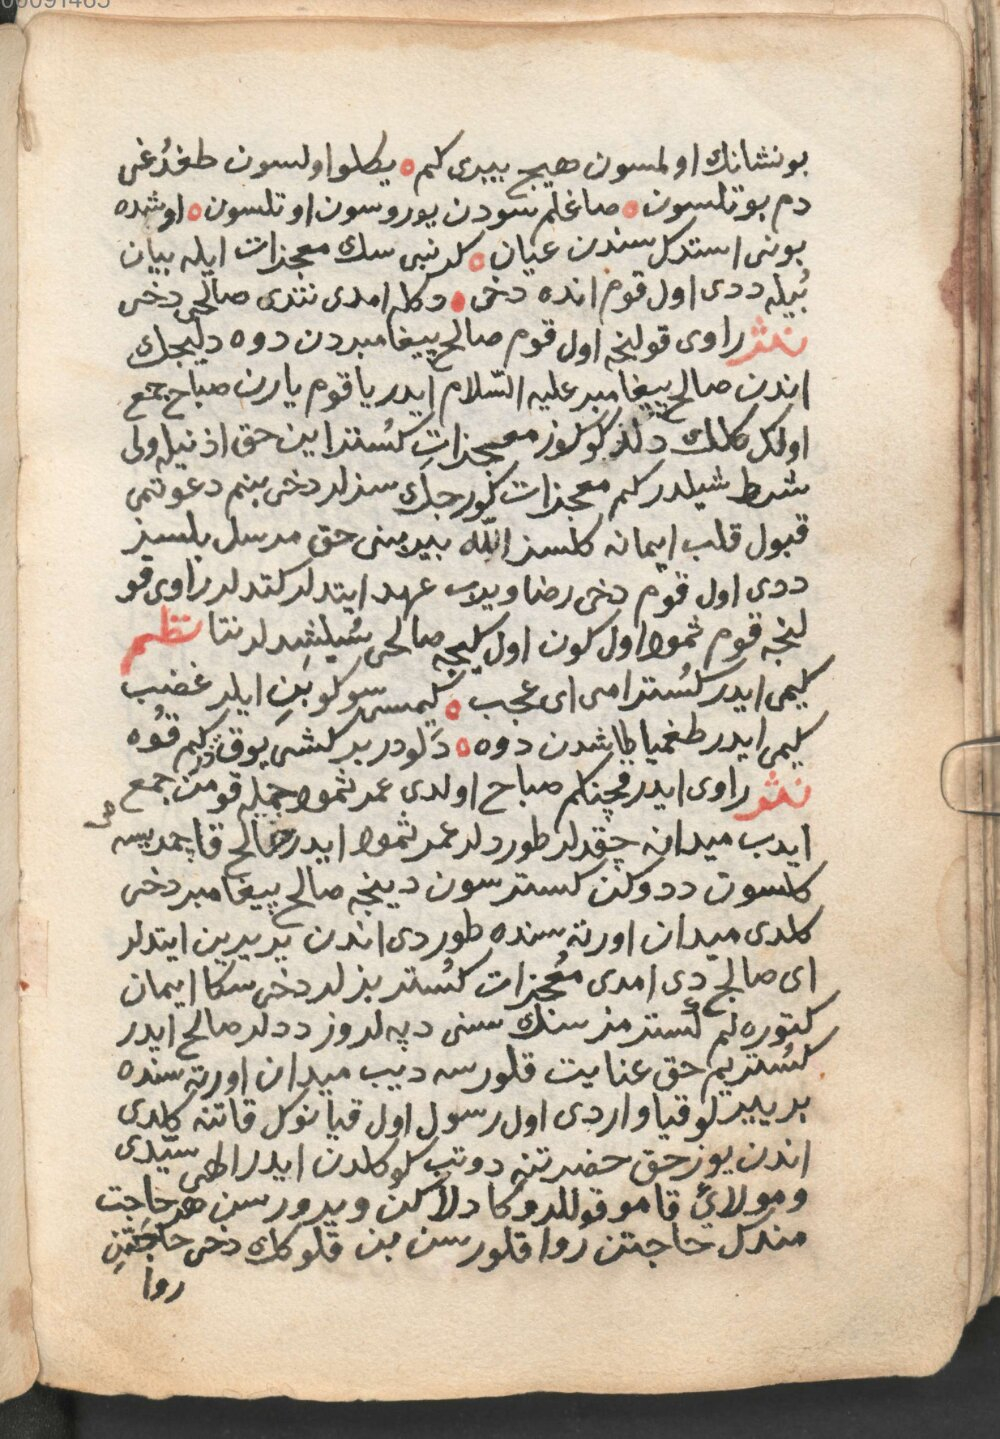 00091465
بونشانك اولمسون هيچ بيبدى كلم ۰ يكلو اولسون طغدغى
دم بوتلسون ۰ صاغلم سودن يوروسون اوتلسون ۰ اوشده
بونى استدكل سندن عيان ۰ كر نبى سك معجزات ايله بيان
بُيله ددى اول قوم انده دخى ۰ دكله امدى نتدى صالحى دخى
نثر راوى قولنجه اول قوم صالح پيغامبردن دوه ديليجك
اندن صالح پيغامبر عليه السّلام ايدر يا قوم يارن صباح جمع
اولكل كلك دلدوكلوز معجزاتِ كُسترايين حق اذنيله ولى
شرط شيلدر كم معجزات كورجك سزلر دخى بنم دعوتمى
قبول قلب ايمانه كلسز اللّه بيدر بنى حق مرسل بلسيز
ددى اول قوم دخى رضا ويلاب عهد ايتدلر كتدلر راوى قو
لنجه قوم ثمود اول كون اول كيجه صالحى سُيلشدلر نتا نظم
كيمى ايدر كُسترامى اى عجب ۰ كيمسى سوكوبن ايلر غضب
كيمى ايدر طغميا طاشدن دوه ۰ دلودر بر كشى يوقدر كم قوّه
نثر راوى ايدر قچنكم صباح اولدى عمر ثمود جمله قومن جمع
ايدب ميدانه چقدلر طوردلر عمر ثمود ايدر صالح قاچمديسه
كلسون ددوكن كسترسون دينجه صالح پيغامبر دخى
كلدى ميدان اورته سنده طوردى اندن بربيرين ايتدلر
اى صالح دى امدى مُعجزات كُستر بزلر دخى سكا ايمان
كتوره لم كسترمزسنك سنى دپه لروز ددلر صالح ايدر
كُستريم حق عنايت قلورسه ديب ميدان اورته سنده
بر ييرلو قيا واردى اول رسول اول قيانوكل قاتنه كلدى
اندن يوز حق حضرتنه دوتب كوكلدن ايدر الهى سيّدى
ومولائ قامو قوللروكا دلاكن ويرورسن هر حاجت
مندك حاجتن روا قلورسن بن قلوكك دخى حاجَتِن
روا